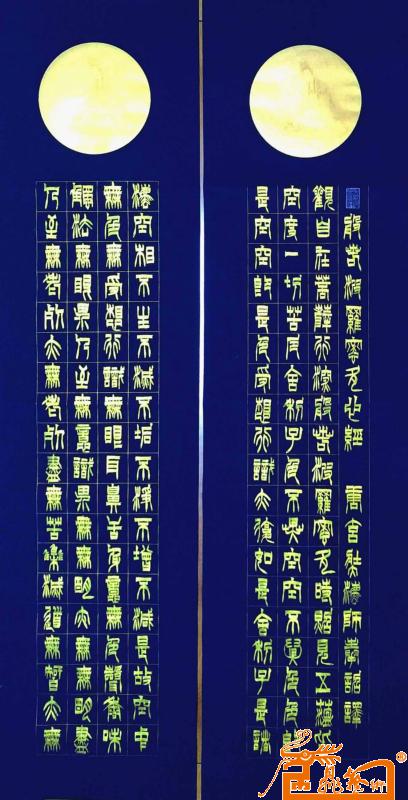 般若波羅蜜多心經 唐玄奘法師奉詔譯
觀自在菩薩行深般若波羅蜜多時照見五蘊皆
空度一切苦厄舍利子色不異空空不異色色即
是空空即是色受想行識亦復如是舍利子是諸
法空相不生不滅不垢不淨不增不減是故空中
無色無受想行識無眼耳鼻舌身意無色聲香味
觸法無眼界乃至無意識界無無明亦無無明盡
乃至無老死亦無老死盡無苦集滅道無智亦無